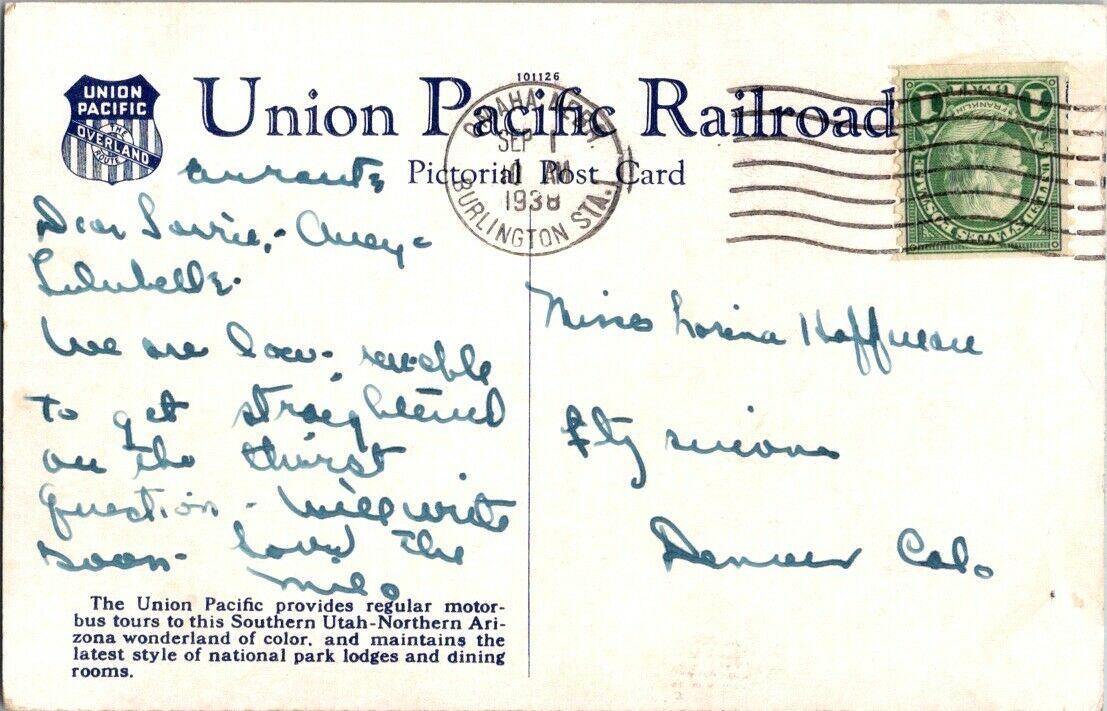 101126
UNION
PACIFIC
THE
OVERLAND
ROUTE
Union Pacific Railroad
Pictorial Post Card
OMAHA, NEBR.
SEP 1
1938
BURLINGTON STA.
1 1
FRANKLIN
Dear Lorrie,-
Lulubelle-
We are
to get straightened
on the thirst
question - will write
soon- love the
milo
Miss Lorina Hoffman
Denver Colo
The Union Pacific provides regular motor-
bus tours to this Southern Utah-Northern Ari-
zona wonderland of color, and maintains the
latest style of national park lodges and dining
rooms.